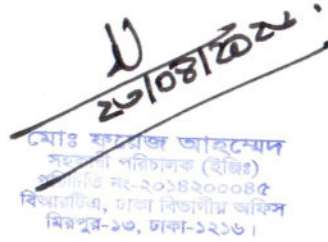 ২৩/০৪/২৫
মোঃ ফয়েজ আহম্মেদ
সহকারী পরিচালক (ইঞ্জিঃ)
পরিচিতি নং-২০১৪২০০০৪৫
বিআরটিএ, ঢাকা বিভাগীয় অফিস
মিরপুর-১৩, ঢাকা-১২১৬।